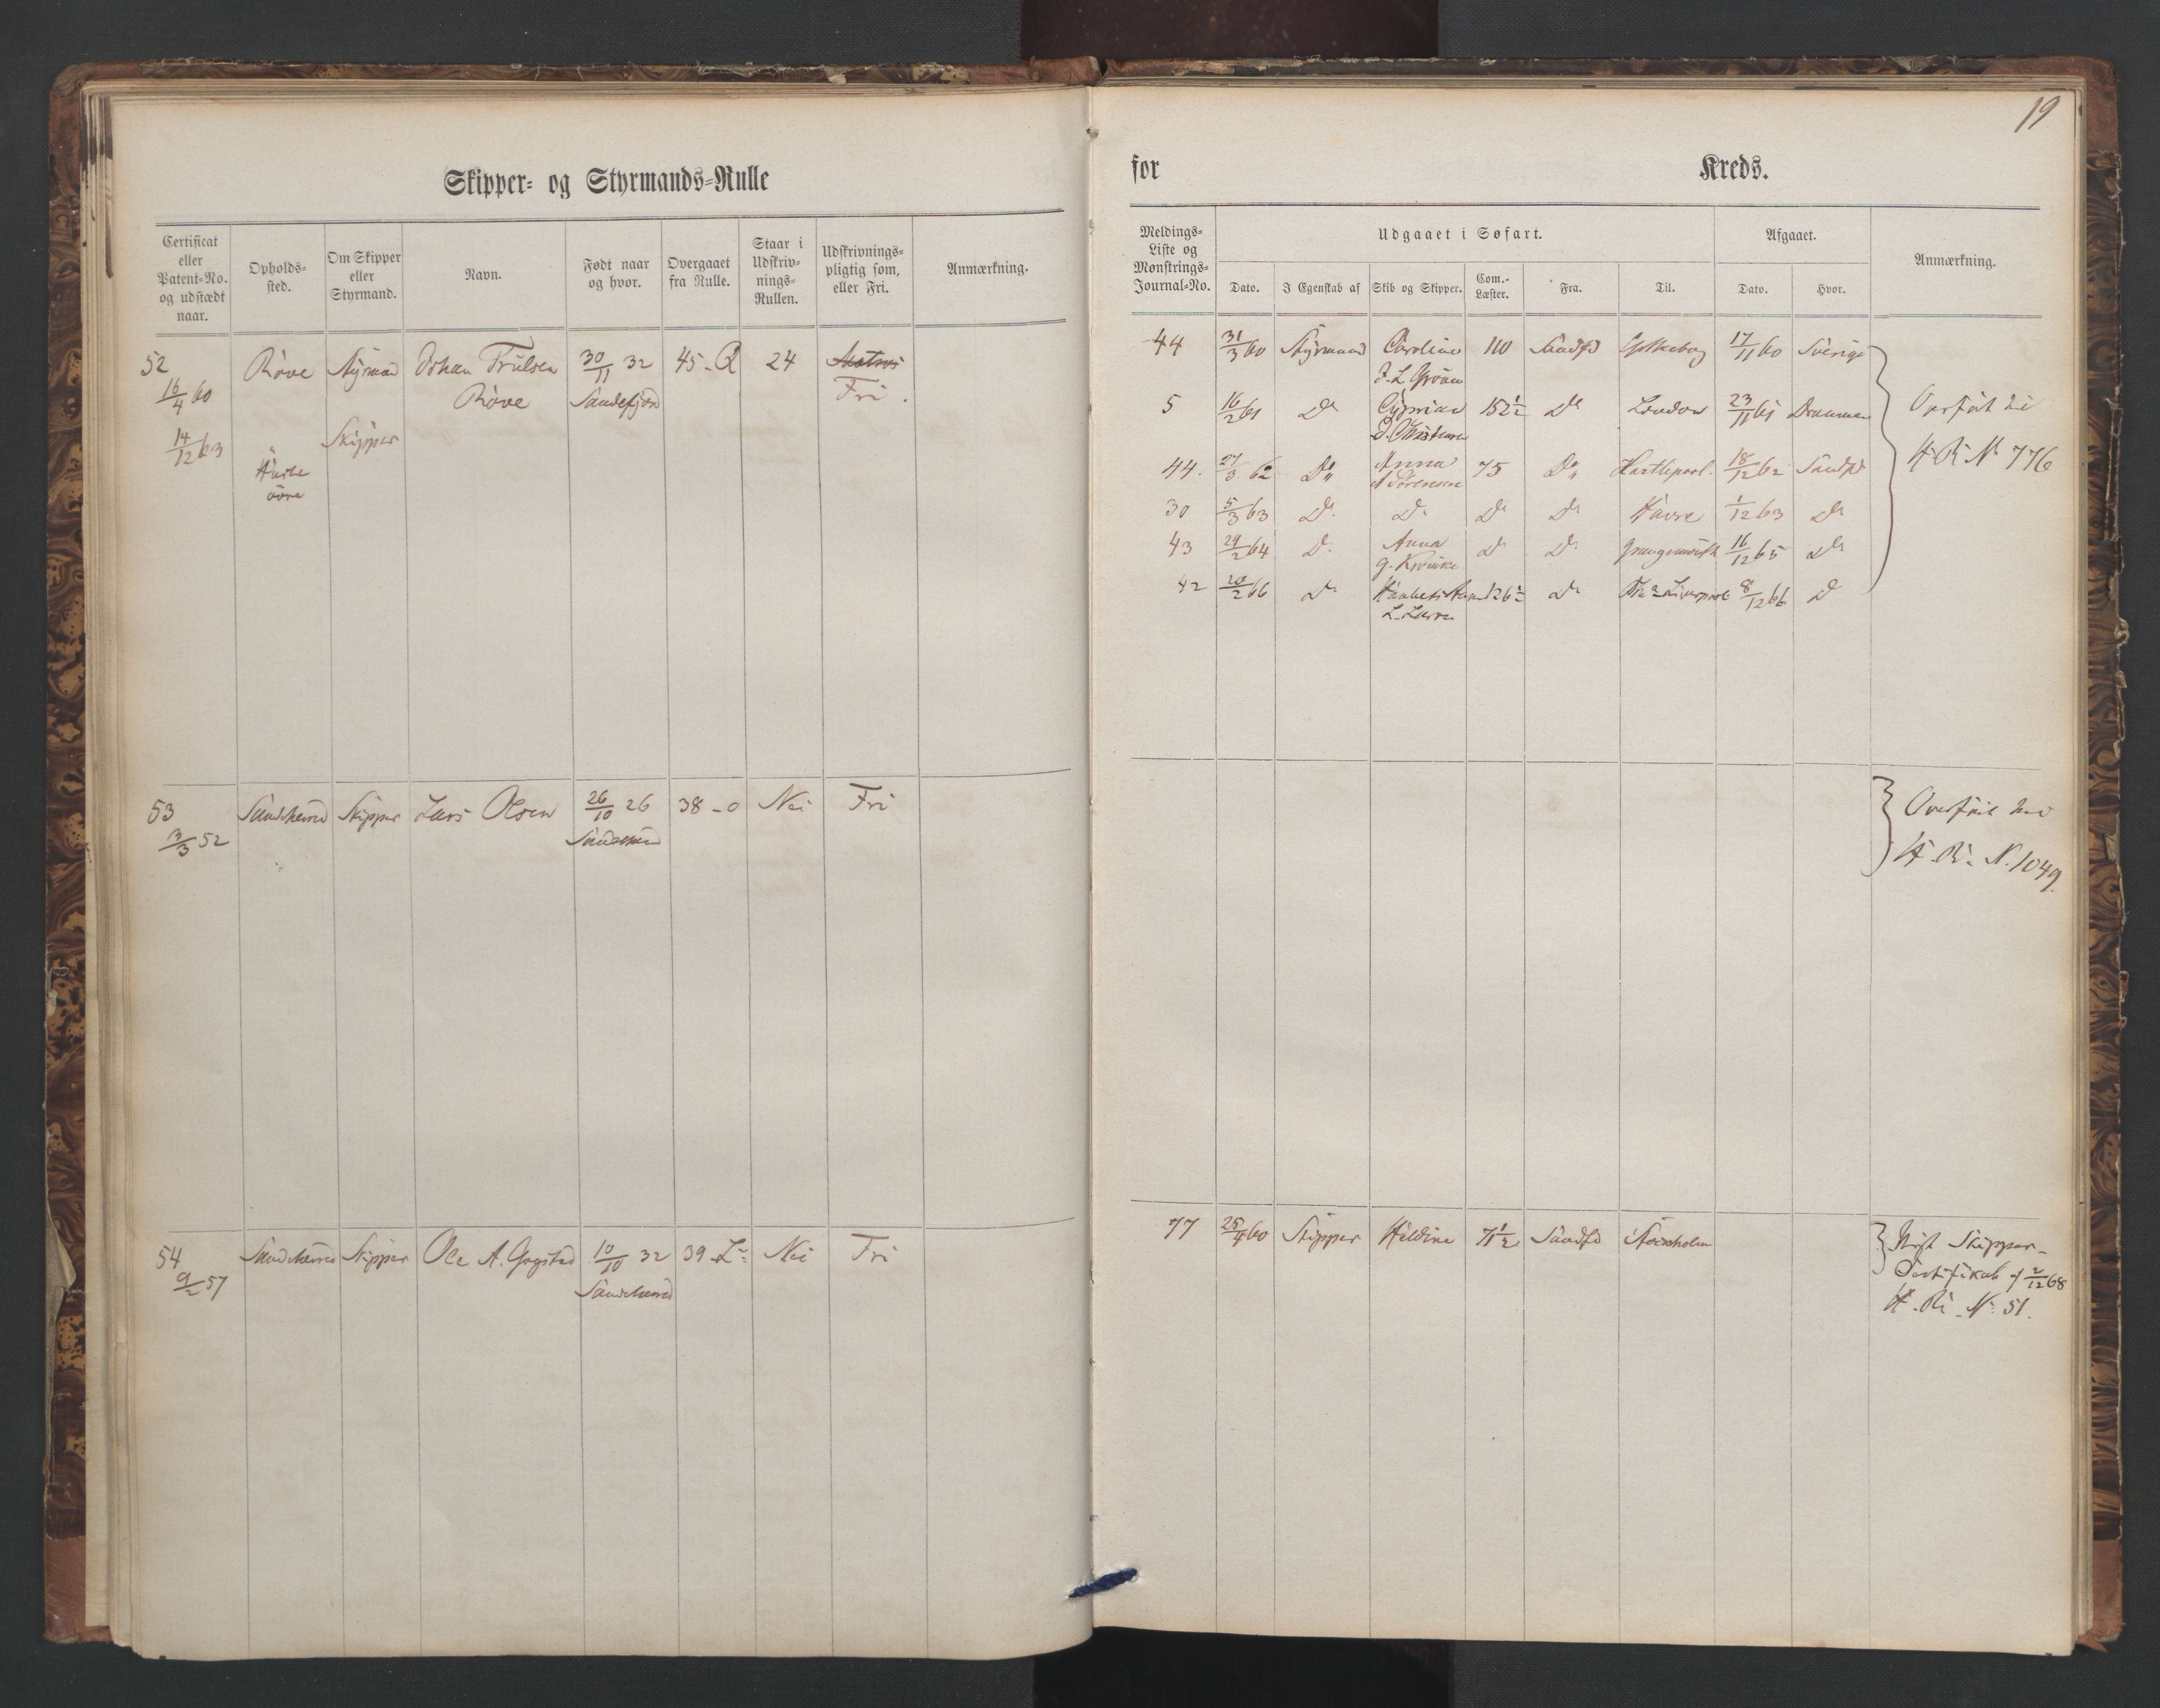 19
Skipper- og Styrmands-Rulle
for Kreds.
Certificat eller Patent-No. og udstædt naar.
Opholds-sted.
Om Skipper eller Styrmand.
Navn.
Født naar og hvor.
Overgaaet fra Rulle.
Staar i Udskriv-nings-Rullen.
Udskrivnings-pligtig som, eller Fri.
Anmærkning.
Meldings-Liste og Mønstrings-Journal-No.
Udgaaet i Søfart.
Dato.
I Egenskab af
Skib og Skipper.
Com.-Læster.
Fra.
Til.
Afgaaet.
Dato.
Hvor.
Anmærkning.
52 Røve Styrmand Johan Trulsen 30/11 32 45-Q 24 Matros
16/4 60 Røve Sandefjord Fri.
14/12 63 Skipper
øvre
44 31/3 60 Styrmand Caroline 110 Sandfd Gøtheborg 17/11 60 Sverige
5 16/2 61 Do Cyprian 152 1/2 Do London 23/11 61 Drammen
44. 27/3 62 Do Anna 75 Do Hartlepool. 18/12 62 Sandfd
A Sørensen
30 5/3 63 Do Do Do Do Havre 1/12 63 Do
43 29/2 64 Do Anna Do Do 16/12 65 Do
42 20/2 66 Do Do Liverpool 8/12 66 Do
Overført til
H-R N 776
53 Sandeherred Skipper Lars Olsen 26/10 26 38-0 Nei Fri
3/3 52 Sandeherred
Overført til
H-R. N. 1049.
54 Sandeherred Skipper Ole A. Gogstad 10/10 32 39-L Nei Fri
9/2 57 Sandeherred
77 25/4 60 Skipper Hildine 71 1/2 Sandfd Stockholm
Skipper-
Certifikat af 2/12 68
H-R. N. 51.